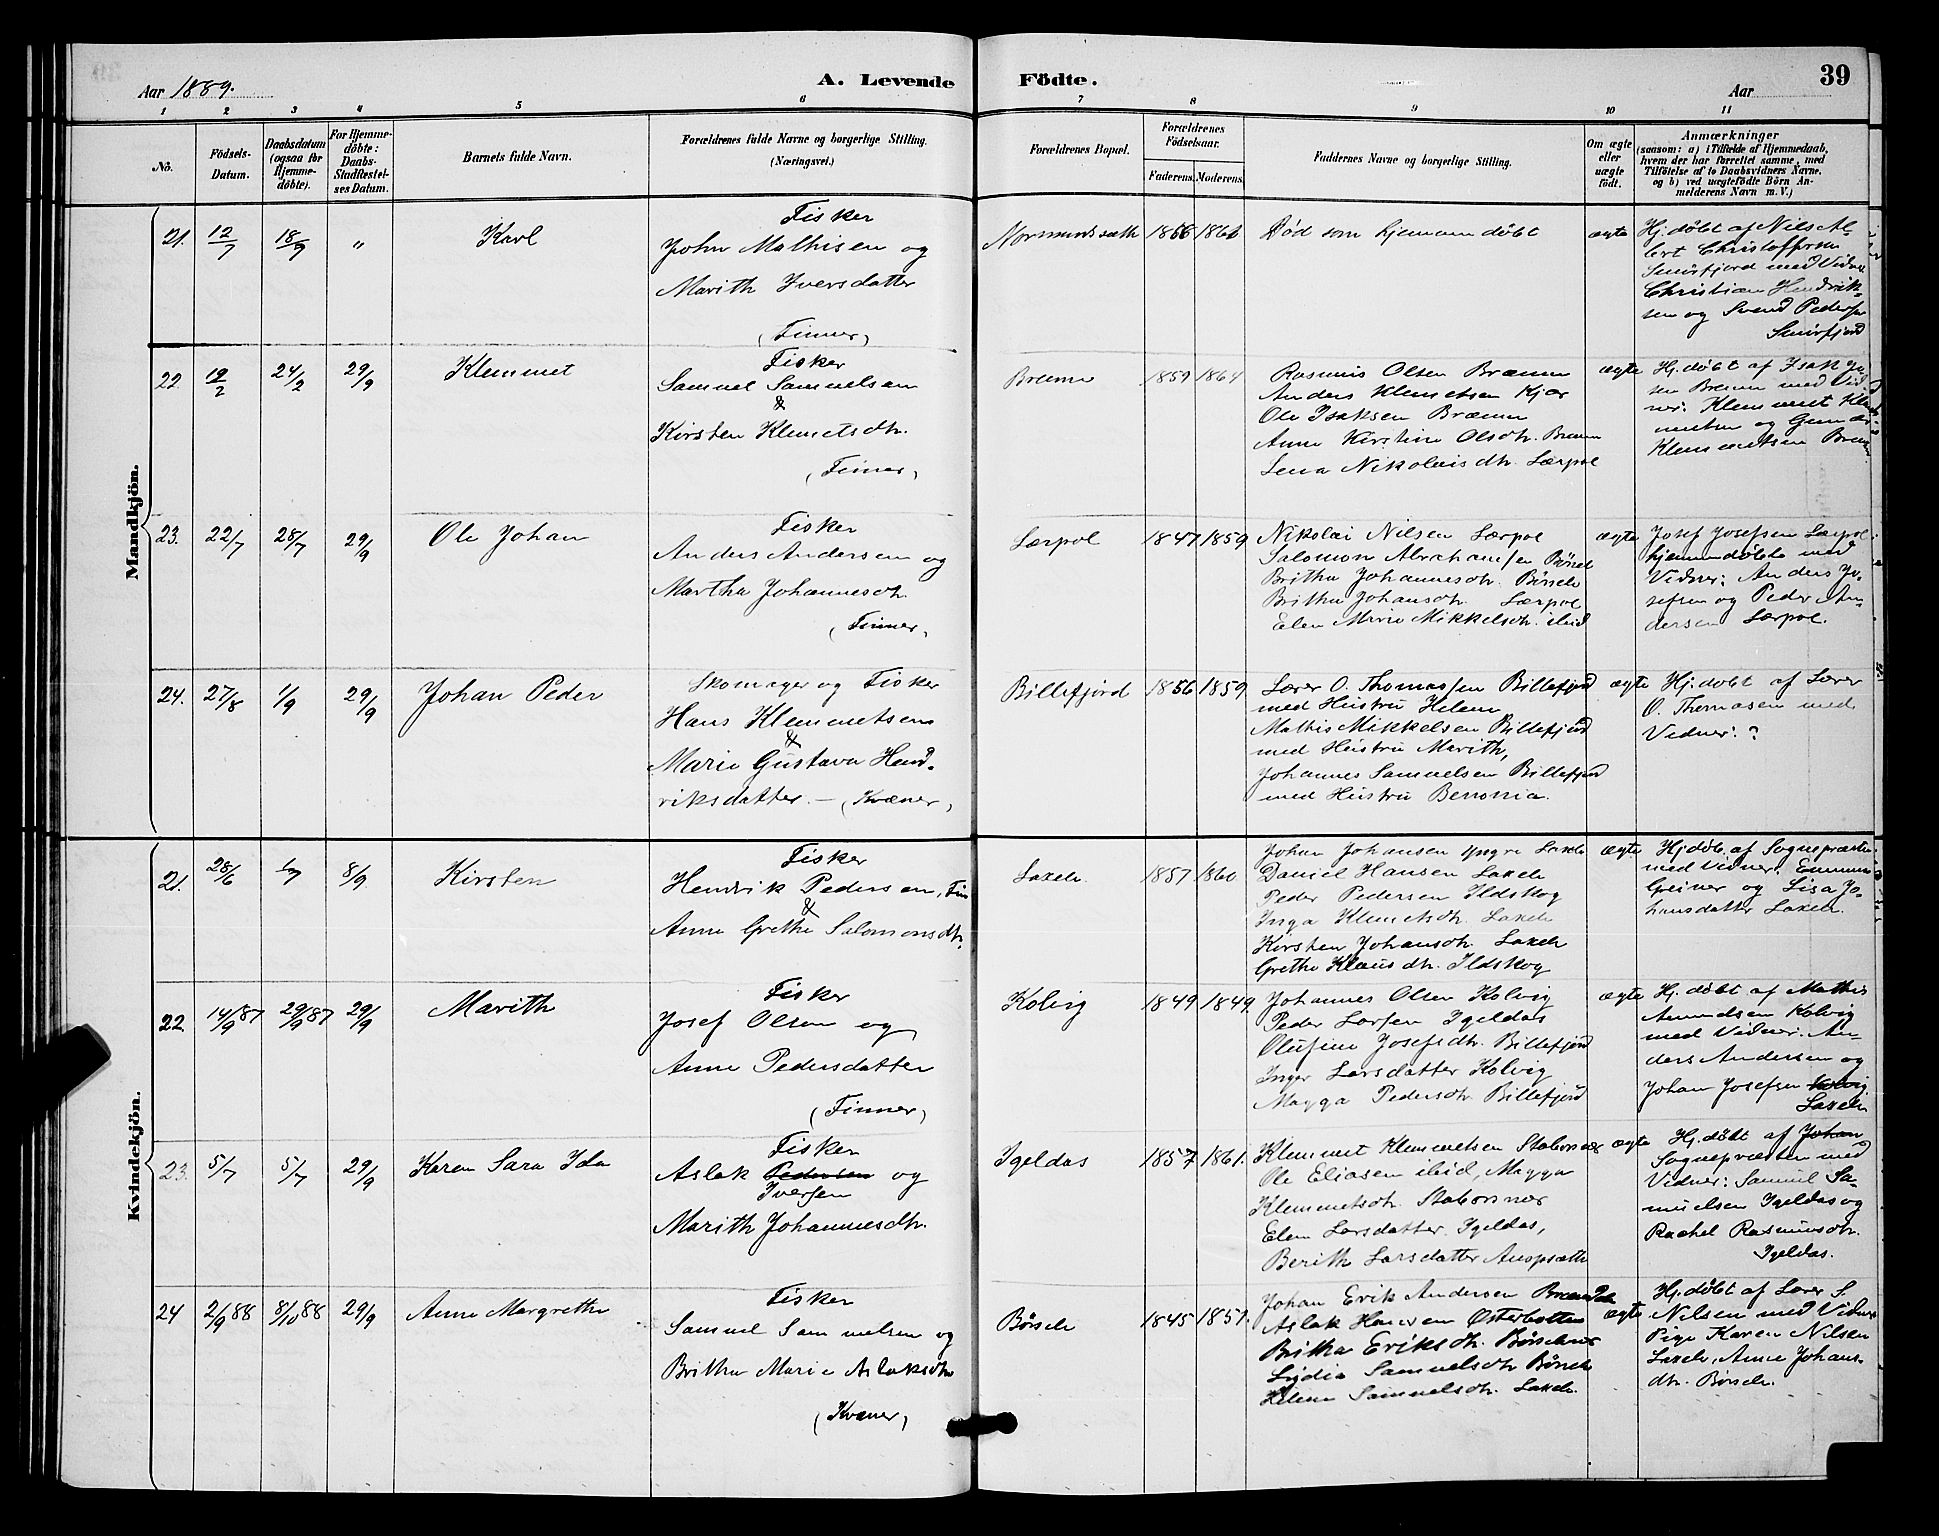 Aar 1889.
A. Levende Födte.
Aar
39
1 2 3 4 5 6 7 8 9 10 11
No.
Födsels-Datum.
Daabsdatum (ogsaa for Hjemmedöbte).
For Hjemmedöbte: Daabs-Stadfestelses Datum.
Barnets fulde Navn.
Forældrenes fulde Navne og borgerlige Stilling. (Næringsvei.)
Forældrenes Bopæl.
Forældrenes Födselsaar.
Faderens. Moderens.
Faddernes Navne og borgerlige Stilling.
Om ægte eller uægte födt.
Anmærkninger
(saasom: a) i Tilfælde af Hjemmedaab,
hvem der har forrettet samme, med
Tilföielse af to Daabsvidners Navne,
og b) ved uægtefödte Börn An-
melderens Navn m. V.)
Mandkjön.
21. 12/7 18/9 " Karl
Fisker
John Mathisen og
Marith Iversdatter
(Finner)
Normundsæth
Död som hjemmedöbt
ægte
Hj. döbt af Nils Al-
bert Christoffersen
Smörfjord med Vidner
Christian Hendrik-
sen og Svend Pedersen
Smörfjord
22 19/2 24/2 29/9 Klemmet
Fisker
Samuel Samuelsen
&
Kirsten Klemetsdtr.
(Finner)
Brænna
1859 1864
Rasmus Olsen Brænna
Anders Klemetsen Kjær
Ole Isaksen Brænna
Anne Kirstine Olsdtr. Brænna
Lena Nikolaisdtr. Lærpol
ægte
Hj. döbt af Isak
Brænna med Vid-
ner: Klemmet Klem-
metsen og
Klemmetsen Brænna
23. 22/7 28/7 29/9 Ole Johan
Fisker
Anders Andersen og
Martha Johannesdtr.
(Finner)
Lærpol
1847 1859
Nikolai Nilsen Lærpol
Salomon Abrahamsen Börsele
Britha Johannesdtr. Börsele
Britha Johansdtr. Lærpol
Elen Marie Mikkelsdtr. ibid
ægte
Josef Josefsen Lærpol
hjemmedöbte med
Vidner: Anders Jo-
sefsen og Peder An-
dersen Lærpol.
24. 27/8 1/9 29/9 Johan Peder
Skomager og Fisker
Hans Klemmetsen
&
Marie Gustava Hend-
riksdatter. — (Kvæner)
Billefjord
1856 1859
Lærer O. Thomassen Billefjord
med Hustru Helene
Mathis Mikkelsen Billefjord
med Hustru Marith,
Johannes Samuelsen Billefjord
med Hustru Beronia.
ægte
Hj. döbt af Lærer
O. Thomasen med
Vidner: ?
Kvindekjön.
21. 28/6 1/7 8/9 Kirsten
Fisker
Hendrik Pedersen, Fin
&
Anne Grethe Salomonsdtr.
Laxelv
1857 1860
Johan Johansen Yngre Laxelv
Daniel Hansen Laxelv
Peder Pedersen Ildskog
Inga Klemetsdtr. Laxelv
Kirsten Johansdtr. Laxelv
Grethe Klausdtr. Ildskog
ægte
Hj. döbt af Sognepræsten
med Vidner: Emma
Greiner og Lisa Jo-
hansdatter Laxelv.
22 14/9 87 29/9 87 29/9 Marith
Fisker
Josef Olsen og
Anne Pedersdatter
(Finner)
Kolvig
1849 1849.
Johannes Olsen Kolvig
Peder Larsen Igeldas
Olufine Josefsdtr. Billefjord
Inger Larsdatter Kolvig
Magga Pedersdtr. Billefjord
ægte
Hj. döbt af Mathis
Amundsen Kolvig
med Vidner: An-
ders Andersen og
Johan Josefsen Kolvig
Laxelv
23. 5/7 5/7 29/9 Karen Sara Ida
Fisker
Aslak Pedersen og
Iversen
Marith Johannesdtr.
Igeldas
1857 1861.
Klemmet Klemmetsen Stabursnæs
Ole Eliasen ibid, Magga
Klemmetsdtr. Stabursnæs
Elen Larsdatter Igeldas,
Berith Larsdatter
ægte
Hj. döbt af Johan
Sognepræsten med
Vidner: Samuel Sa-
muelsen Igeldas og
Rachel Rasmusdtr.
Igeldas.
24 2/9 88 8/10 88 29/9 Anne Margrethe
Fisker
Samuel Samuelsen og
Britha Marie Aslaksdtr.
(Kvæner)
Börselv
1845 1851.
Johan Erik Andersen
Aslak Hansen Österbotten
Britha Eriksdtr. Börselvnes
Lydia Samuelsdtr. Börselv
Helene Samuelsdtr. Laxelv.
ægte
Hj. döbt af Lærer S.
Nilsen med Vidner
Pige Karen Nilsen
Laxelv, Anne Johans-
dtr. Börselv.